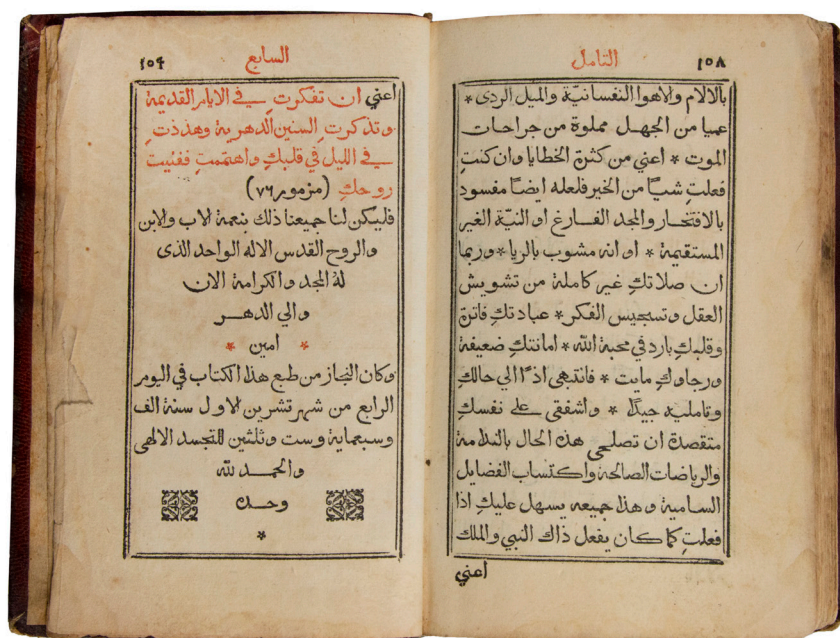 ١٠٨
التامل
بالالام والاهوا النفسانيّة والميل الردى *
عميا من الجهل مملوة من جراحات
الموت * اعني من كثرة الخطايا وان كنتِ
فعلتِ شيًا من الخير فلعله ايضًا مفسود
بالافتخار والمجد الفارغ او النيّة الغير
المستقيمة * او انه مشوب بالريا * وربما
ان صلاتكِ غير كاملة من تشويش
العقل وتسجيس الفكر * عبادتكِ فاترة
وقلبكِ بارد في محبة الله * امانتكِ ضعيفة
ورجاوكِ مايت * فانتبهي اذًا الي حالكِ
وتامليه جيدًا * واشفقي على نفسكِ
متقصدة ان تصلحي هذه الحال بالندامة
والرياضات الصالحة واكتساب الفضايل
السامية وهذا جميعه يسهل عليكِ اذا
فعلتِ كما كان يفعل ذاك النبي والملك
اعني
السابع
١٠٩
اعني ان تفكرتِ في الايام القديمة
وتذكرتِ السنين الدهرية وهذذتِ
في الليل في قلبكِ واهتممتِ ففنيت
روحكِ (مزمور ٧٦)
فليكن لنا جميعنا ذلك بنعمة الاب والابن
والروح القدس الاله الواحد الذى
لهُ المجد والكرامة الان
والي الدهر
* امين *
وكان النجاز من طبع هذا الكتاب في اليوم
الرابع من شهر تشرين الاول سنة الف
وسبعماية وست وثلثين للتجسد الالهى
والحمد لله
وحده
*